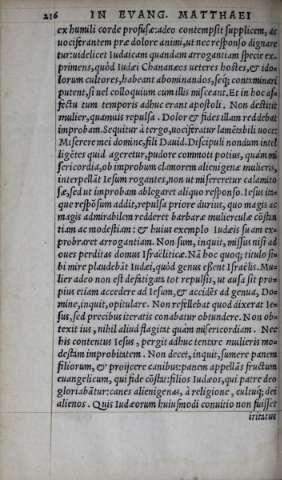 216 IN EVANG. MATTHAEI
ex humili corde profusæ: adeo contempsit supplicem, ac
uociferantem præ dolore animi, ut nec responso dignare
tur: uidelicet Iudaicam quandam arrogantiam specie ex
primens, quòd Iudæi Chananæos ueteres hostes, & ido
lorum cultores, habeant abominandos, seq; contaminari
putent, si uel colloquium cum illis misceant. Et in hoc af
fectu tum temporis adhuc erant apostoli. Non destitit
mulier, quamuis repulsa. Dolor & fides illam reddebat
improbam. Sequitur à tergo, uociferatur lamētabili uoce:
Miserere mei domine, fili Dauid. Discipuli nondum intel
ligētes quid ageretur, pudore commoti potius, quàm mi
sericordia, ob improbum clamorem alienigenæ mulieris,
interpellāt Iesum rogantes, non ut misereretur calamito
sæ, sed ut improbam ablegaret aliquo responso. Iesus ita-
que respōsum addit, repulsa priore durius, quo magis ac
magis admirabilem redderet barbaræ mulierculæ cōstan
tiam ac modestiam: & huius exemplo Iudæis suam ex-
probraret arrogantiam. Non sum, inquit, missus nisi ad
oues perditas domus Israëliticæ. Nā hoc quoq; titulo si-
bi mire plaudebāt Iudæi, quòd genus essent Israëlis. Mu-
lier adeo non est defatigata tot repulsis, ut ausa sit pro-
pius etiam accedere ad Iesum, & accidēs ad genua, Do-
mine, inquit, opitulare. Non refellebat quod dixerat Ie-
sus, sed precibus iteratis conabatur obtundere. Non ob-
texit ius, nihil aliud flagitat quàm misericordiam. Nec
his contentus Iesus, pergit adhuc tentare mulieris mo-
destam improbitatem. Non decet, inquit, sumere panem
filiorum, & proijcere canibus: panem appellās fructum
euangelicum, qui fide cōstat: filios Iudæos, qui patre deo
gloriabātur: canes alienigenas, à religione, cultuq; dei
alienos. Quis Iudæorum huiusmodi conuitio non fuisset
irritatus